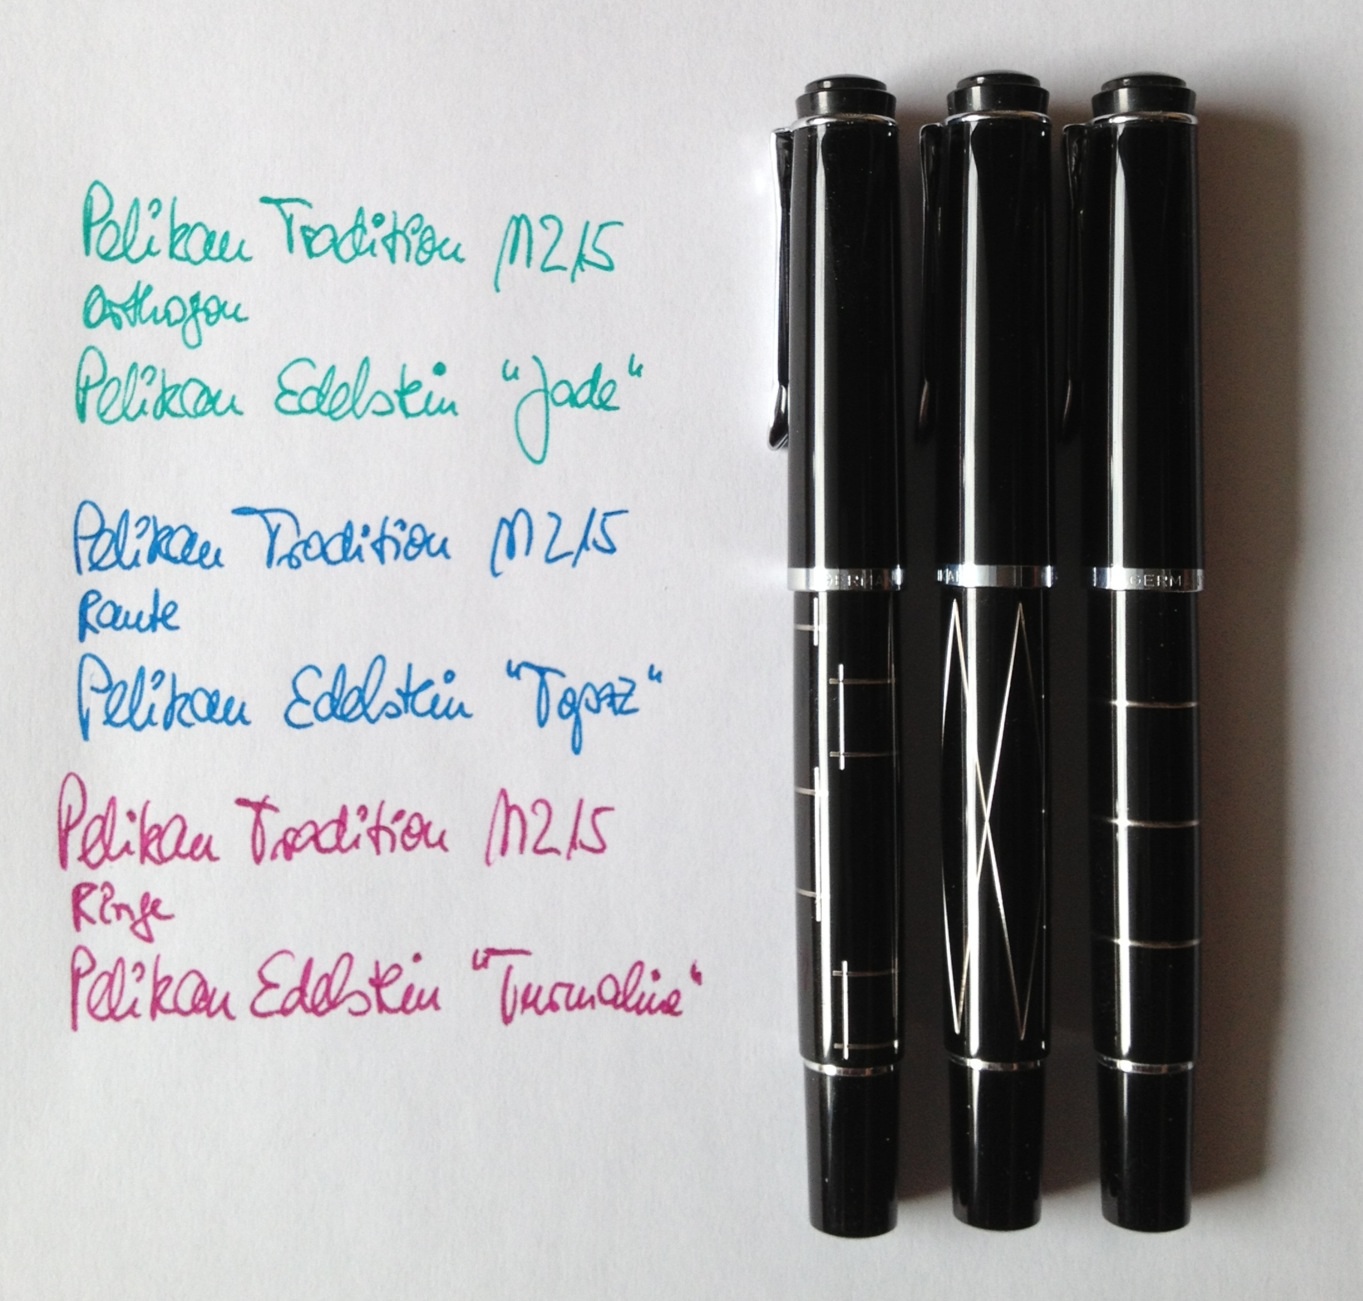 Pelikan Tradition M215
Orthogon
Pelikan Edelstein "Jade"
Pelikan Tradition M215
Raute
Pelikan Edelstein "Topaz"
Pelikan Tradition M215
Ringe
Pelikan Edelstein "Turmaline"
GERMAN
GERM